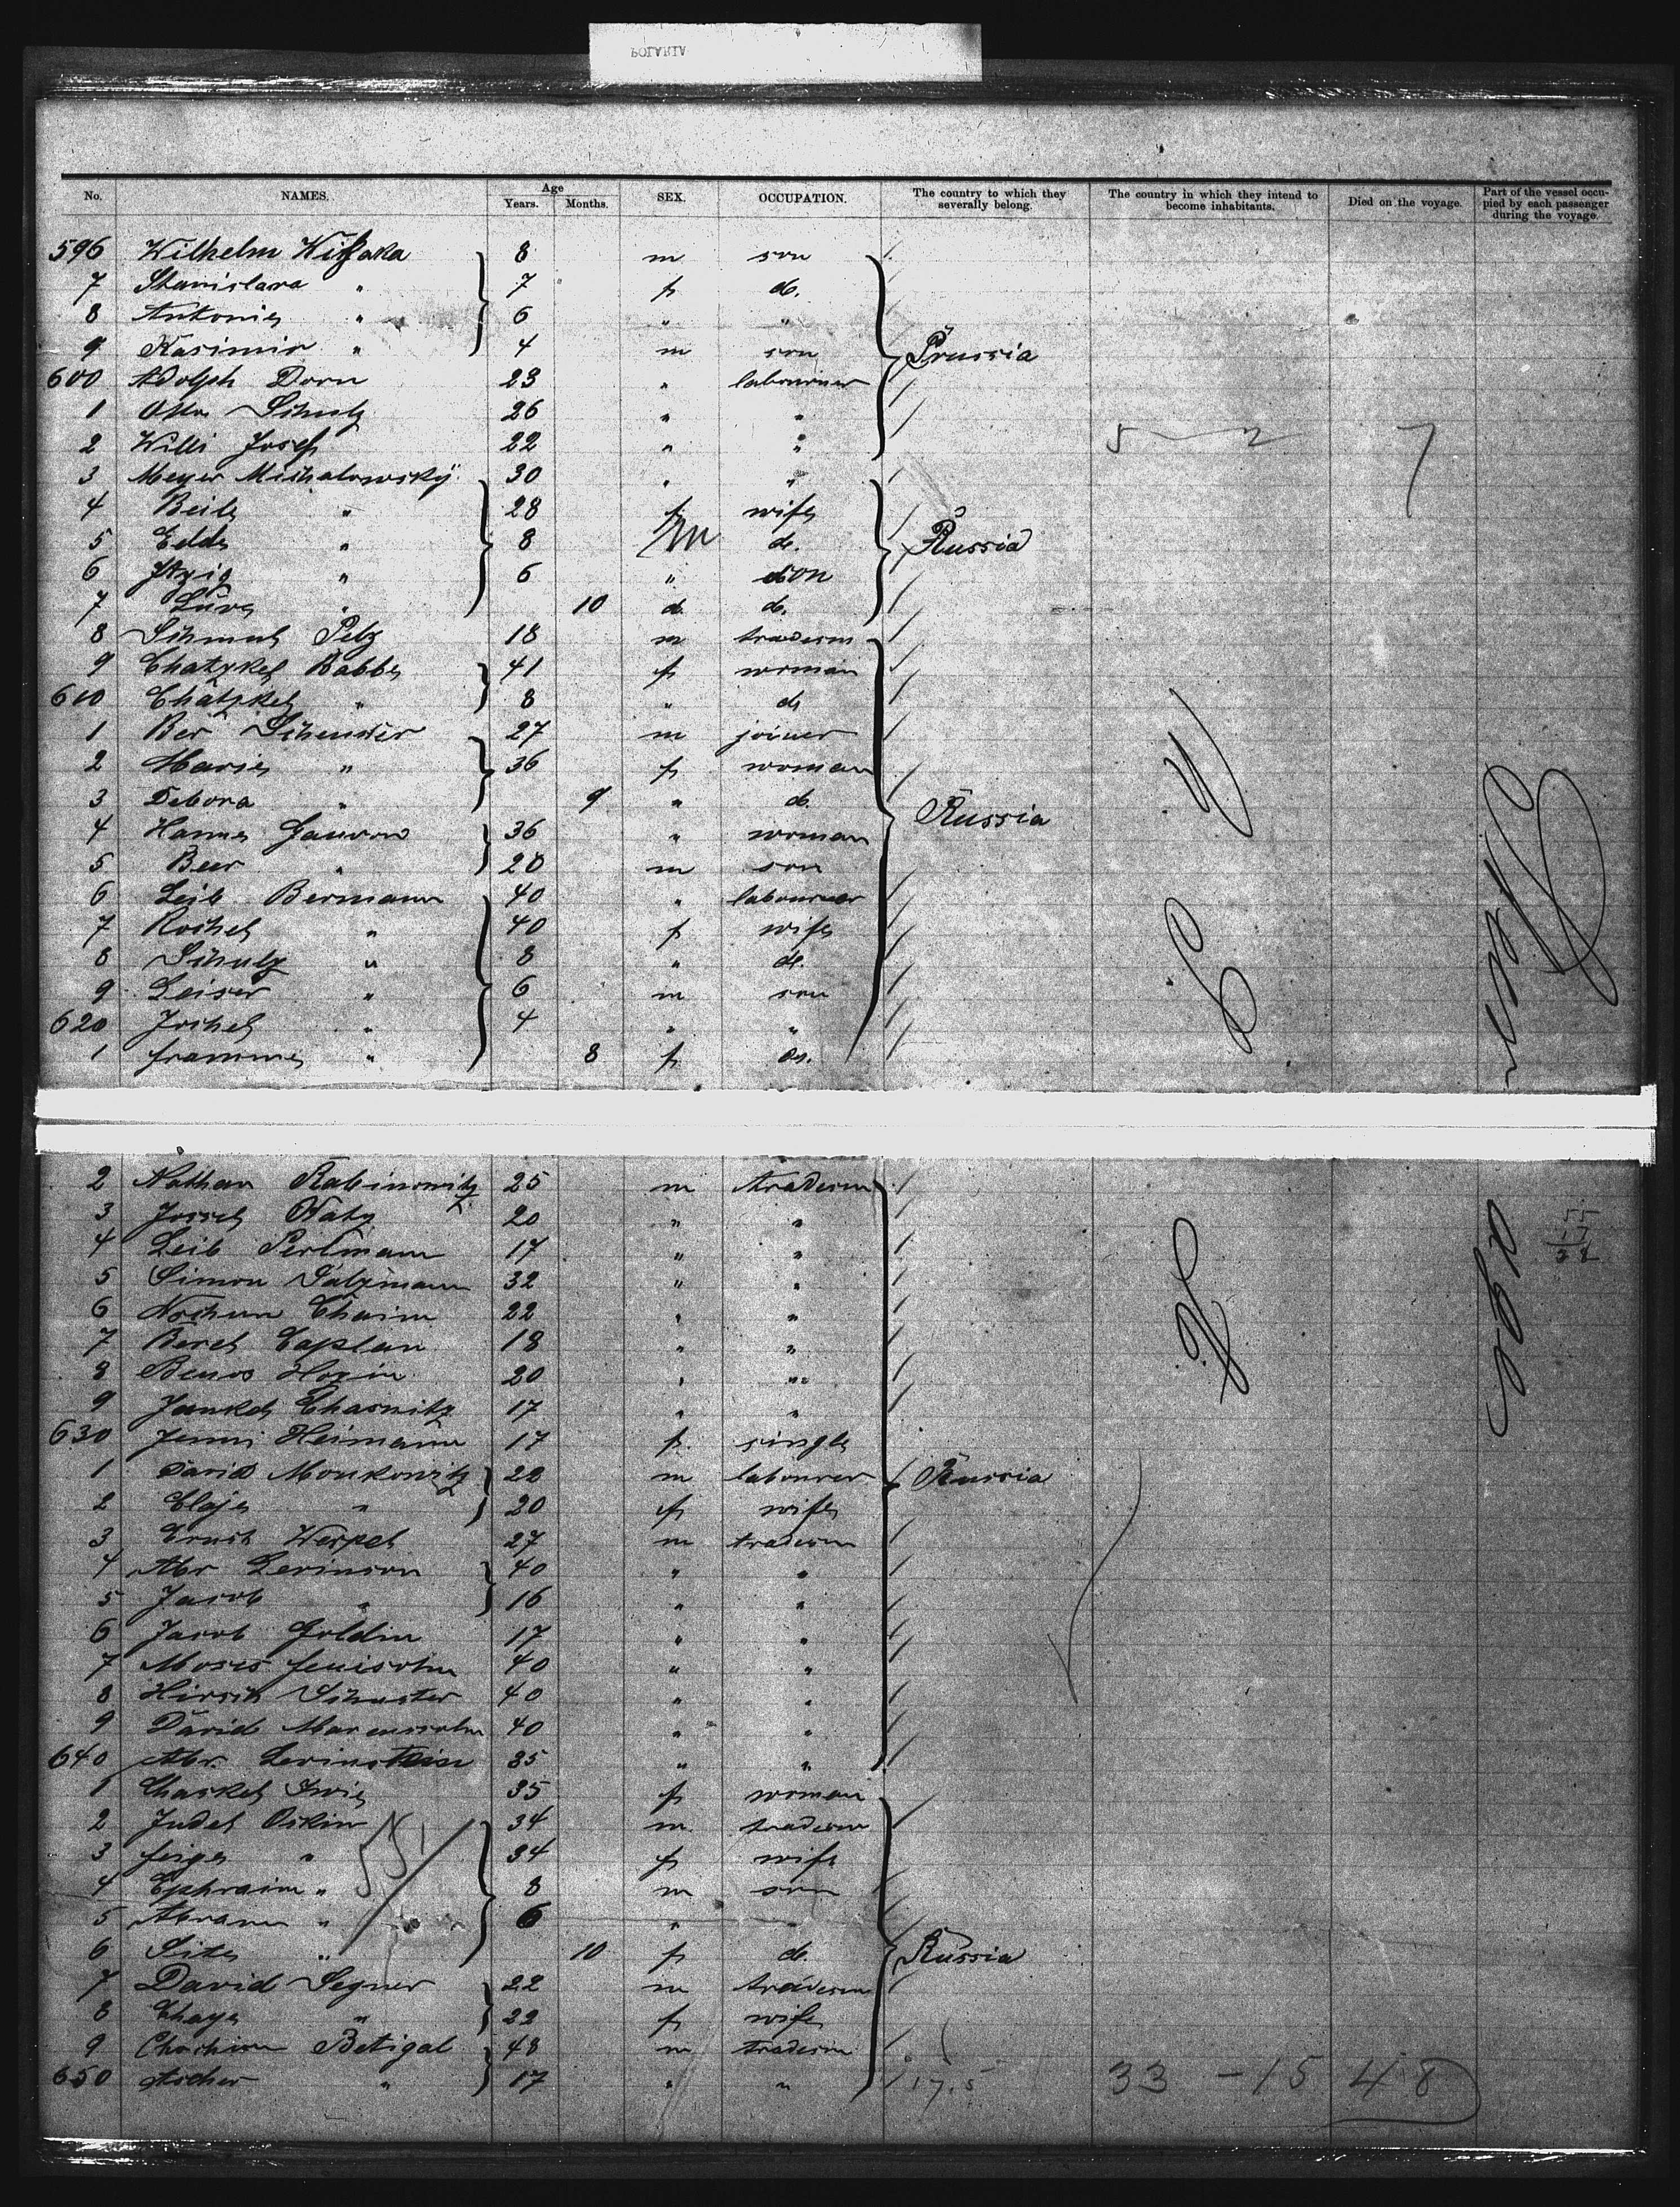 POLARIA
No. NAMES. Age Years. Months. SEX. OCCUPATION. The country to which they severally belong. The country in which they intend to become inhabitants. Died on the voyage. Part of the vessel occupied by each passenger during the voyage.
596 Wilhelm 8 m son
7 Stanislava " 7 f do.
8 Antonie " 6 " "
9 Kasimir " 4 m son Prussia
600 Adolph Dorn 23 " labourer
1 Otto Schulz 26 " "
2 Willi Josef 22 " " 5 2 7
3 Meyer Michalowsky 30 " "
4 Beile " 28 f wife
5 Edde " 8 m do. Russia
6 Itzig " 6 " son
7 " 10 do. do.
8 Schmul Pelz 18 m tradesm
9 Chatzkel Babbe 41 f woman
610 Chatzkel " 8 " do
1 Ber Schuster 27 m joiner
2 Marie " 36 f woman
3 Debora " 9 " do. Russia
4 Hanne 36 " woman
5 Beer " 20 m son
6 Leib Bermann 40 " labourer
7 Rochel " 40 f wife
8 Schulz " 8 " do.
9 Leiser " 6 m son
620 Jochel " 4 " "
1 " 8 f do.
2 Nathan Rabinowitz 25 m tradesm
3 Jossel Katz 20 " " 55
4 Leib Perlmann 17 " " 17
5 Simon Salzmann 32 " " 38
6 Nochum Chaim 22 " "
7 Berel Caplan 18 " "
8 20 " "
9 Jankel Chasnitz 17 " "
630 Jenni Heimann 17 f. single
1 David Monkowitz 22 m labourer Russia
2 " 20 f wife
3 Ernst 27 m tradesm
4 Abr Levinson 40 " "
5 Jacob " 16 " "
6 Jacob Goldin 17 " "
7 Moses 40 " "
8 Hirsch Schuster 40 " "
9 David 40 " "
640 Abr. Levinstein 35 " "
1 Chaskel 35 f woman
2 Judel Oskin 34 m. tradesm
3 Feige " 34 f wife
4 Ephraim " 8 m son
5 Abram " 6 " "
6 " 10 f do. Russia
7 David Segner 22 m tradesm
8 Chaye " 22 f wife
9 Betigal 48 m tradesm
650 Ascher " 17 " " 17.5 33 - 15 48